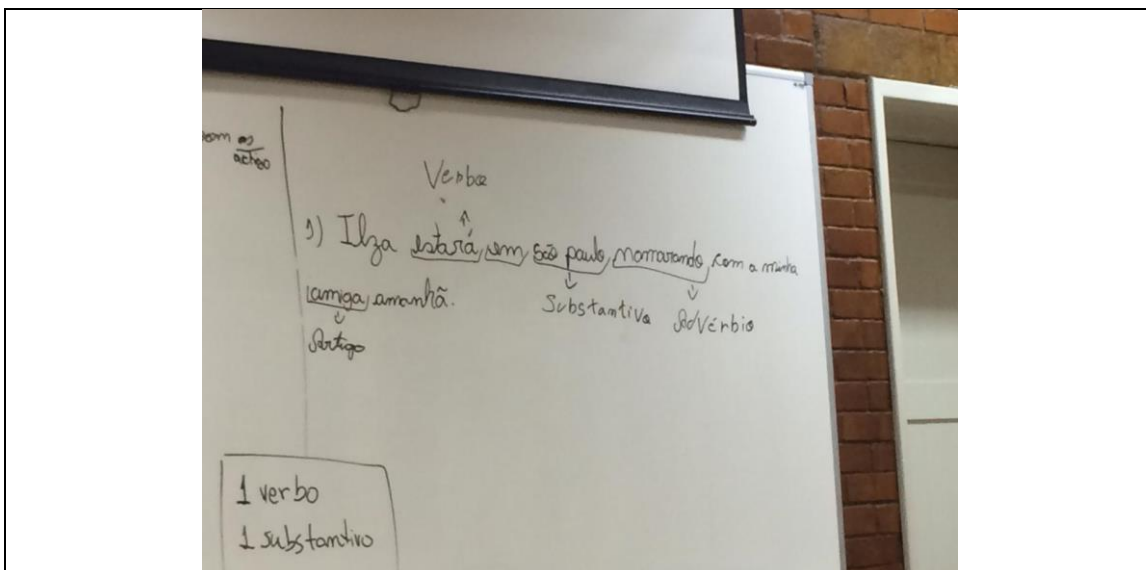 om os
acheo
Verboe
1) Ilza estará, em, são paulo, morrarando, com a minha
amiga, amanhã.
Substantivo Advérbio
Artigo
1 verbo
1 substantivo